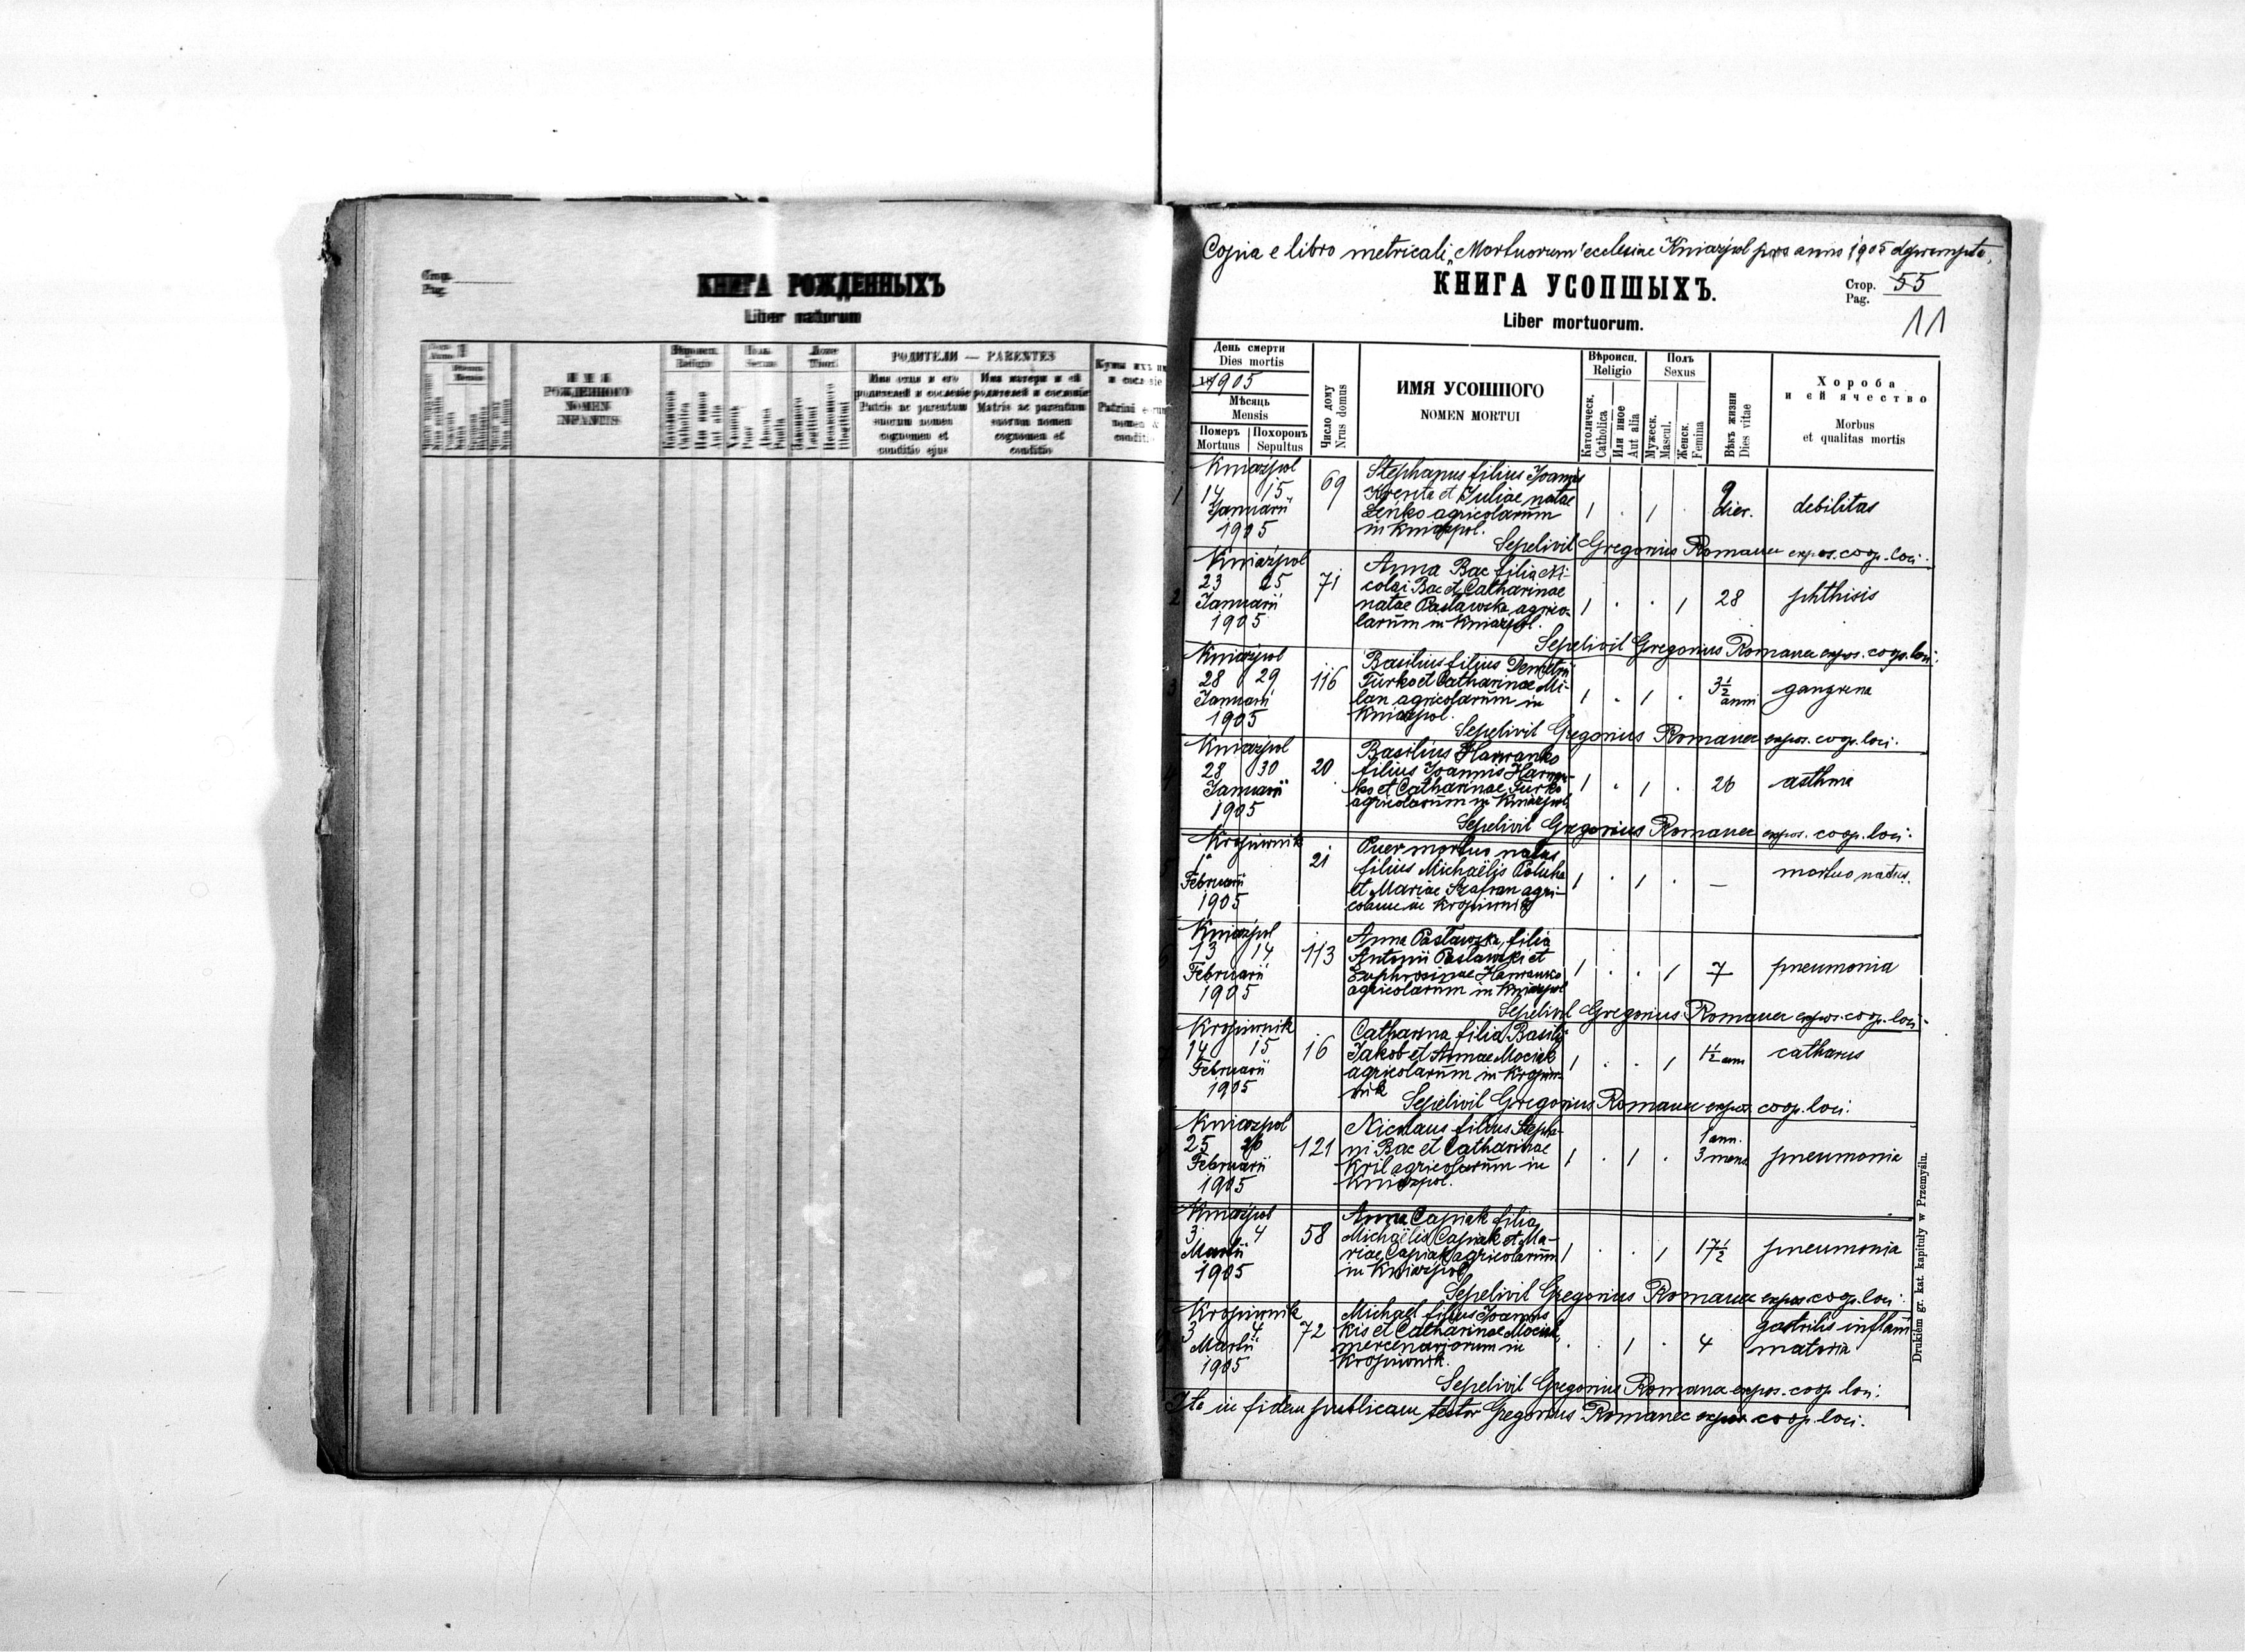 Стор.
Pag.
КНИГА РОЖДЕННЫХЪ
Liber natorum
ИМЯ
РОЖДЕННОГО
NOMEN
INFANTIS
Вѣроисп.
Religio
Полъ
Sexus
Ложе
Thori
РОДИТЕЛИ — PARENTES
Имя отца и его
родителей и сословіе
Patris ac parentum
suorum nomen
cognomen et
conditio ejus
Имя матери и ей
родителей и сословіе
Matris ac parentum
suorum nomen
cognomen et
conditio
Copia e libro metricali „Mortuorum" ecclesiae Kniaźpol pro anno 1905 deprompta.
КНИГА УСОПШЫХЪ.
Liber mortuorum.
Стор.
Pag. 55
11
День смерти
Dies mortis
1905
Мѣсяць
Mensis
Померъ
Mortuus
Похоронъ
Sepultus
Число дому
Nrus domus
ИМЯ УСОПШОГО
NOMEN MORTUI
Вѣроисп.
Religio
Католическ.
Catholica
Или иное
Aut alia
Полъ
Sexus
Мужеск.
Mascul.
Женск.
Femina
Вѣкъ жизни
Dies vitae
Хороба
и ей ячество
Morbus
et qualitas mortis
1 Kniaźpol
14 15
Januarii
1905
69
Stephanus filius Joannis
Krenta et Juliae natae
Leńko agricolarum
in Kniaźpol.
1 . 1 .
9
dier.
debilitas
Sepelivit Gregorius Romanec expos. coop. loci.
2 Kniaźpol
23 25
Januarii
1905
71
Anna Bac filia Ni-
colai Bac et Catharinae
natae Pasławska agrico-
larum in Kniaźpol.
1 . . 1
28
phthisis
Sepelivit Gregorius Romanec expos. coop. loci.
3 Kniaźpol
28 29
Januarii
1905
116
Basilius filius Demetrii
Turko et Catharinae Mi-
lan agricolarum in
Kniaźpol.
1 . 1 .
3½
anni
gangrena
Sepelivit Gregorius Romanec expos. coop. loci.
4 Kniaźpol
28 30
Januarii
1905
20
Basilius Hawranko
filius Joannis Hawran-
ko et Catharinae Turko
agricolarum in Kniaźpol
1 . 1 .
26
asthma
Sepelivit Gregorius Romanec expos. coop. loci.
5 Kropiwnik
1
Februarii
1905
21
Puer mortuo natus
filius Michaëlis Poluha
et Mariae Szafran agri-
colarum in Kropiwnik
1 . 1 .
—
mortuo natus.
6 Kniaźpol
13 14
Februarii
1905
113
Anna Pasławska, filia
Antonii Pasławski et
Euphrosinae Hawranko
agricolarum in Kniaźpol
1 . . 1
7
pneumonia
Sepelivit Gregorius Romanec expos. coop. loci.
Kropiwnik
14 15
Februarii
1905
16
Catharina filia Basilii
Jakob et Annae Mociak
agricolarum in Kropiw-
nik
1 . . 1
1½ ann
catharus
Sepelivit Gregorius Romanec expos. coop. loci.
Kniaźpol
25 26
Februarii
1905
121
Nicolaus filius Stepha-
ni Bac et Catharinae
Kril agricolarum in
Kniaźpol.
1 . 1 .
1 ann.
3 mens
pneumonia
Kniaźpol
3 4
Martii
1905
58
Anna Capiak filia
Michaëlis Capiak et Ma-
riae Capiak agricolarum
in Kniaźpol
1 . . 1
17½
pneumonia
Sepelivit Gregorius Romanec expos coop. loci.
Kropiwnik
3 4
Martii
1905
72
Michael filius Joannis
Kis et Catharinae Mociak
mercenariorum in
Kropiwnik.
. . 1 .
4
gastritis inflam
matoria
Sepelivit Gregorius Romanec expos. coop. loci.
Ita in fidem publicam testor Gregorius Romanec expos coop. loci.
Drukiem gr. kat. kapituły w Przemyślu.